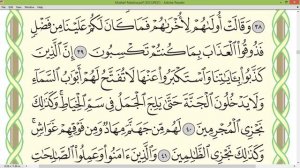 Mushaf Madinah.pdf (SECURED) - Adobe Reader
٣٨ وَقَالَتْ أُولَىٰهُمْ لِأُخْرَىٰهُمْ فَمَا كَانَ لَكُمْ عَلَيْنَا مِن فَضْلٍ
فَذُوقُوا۟ ٱلْعَذَابَ بِمَا كُنتُمْ تَكْسِبُونَ ٣٩ إِنَّ ٱلَّذِينَ
كَذَّبُوا۟ بِـَٔايَٰتِنَا وَٱسْتَكْبَرُوا۟ عَنْهَا لَا تُفَتَّحُ لَهُمْ أَبْوَٰبُ ٱلسَّمَآءِ
وَلَا يَدْخُلُونَ ٱلْجَنَّةَ حَتَّىٰ يَلِجَ ٱلْجَمَلُ فِى سَمِّ ٱلْخِيَاطِ ۚ وَكَذَٰلِكَ
نَجْزِى ٱلْمُجْرِمِينَ ٤٠ لَهُم مِّن جَهَنَّمَ مِهَادٌ وَمِن فَوْقِهِمْ غَوَاشٍ ۚ
وَكَذَٰلِكَ نَجْزِى ٱلظَّٰلِمِينَ ٤١ وَٱلَّذِينَ ءَامَنُوا۟ وَعَمِلُوا۟ ٱلصَّٰلِحَٰتِ